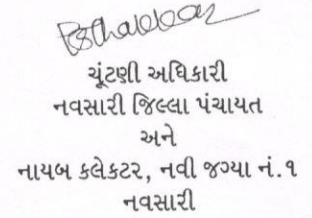 ચૂંટણી અધિકારી
નવસારી જિલ્લા પંચાયત
અને
નાયબ કલેકટર, નવી જગ્યા નં.૧
નવસારી